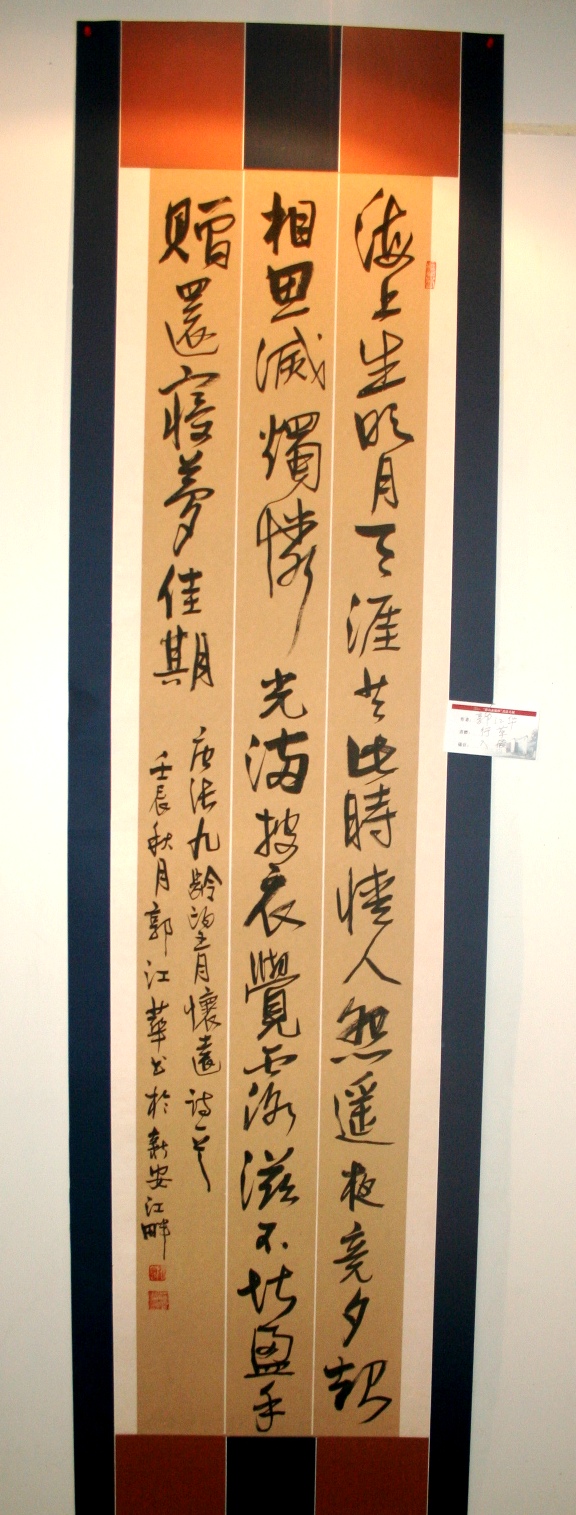 海上生明月天涯共此時情人怨遥夜竟夕起
相思滅燭憐光滿披衣覺露滋不堪盈手
贈還寢夢佳期
唐張九齡望月懷遠詩一首
壬辰秋月郭江華書於新安江畔